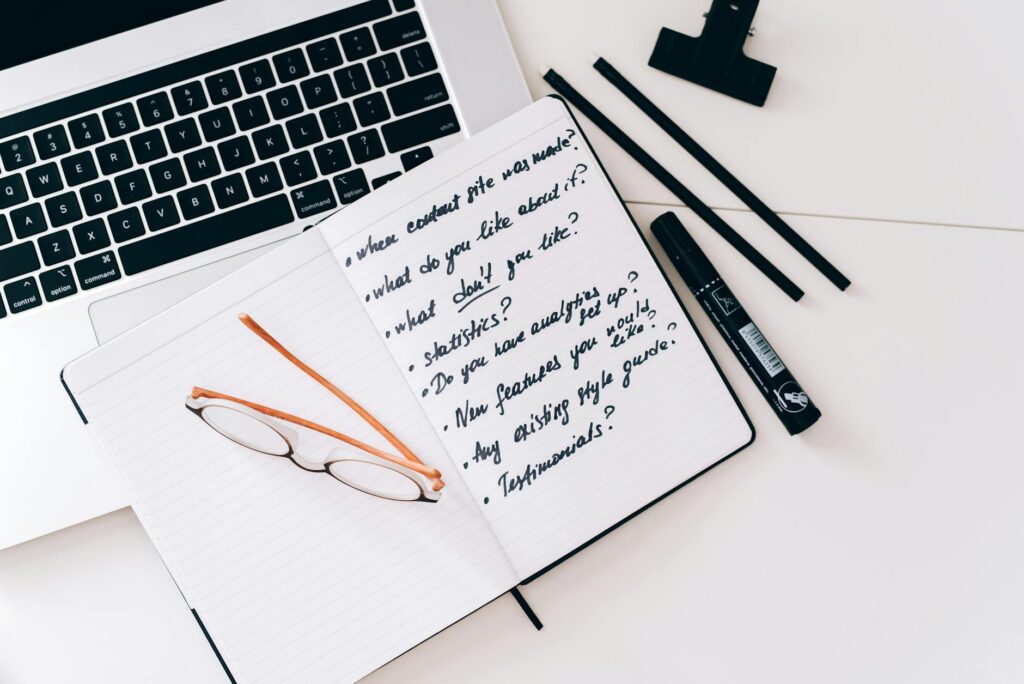 • when content site was made?
• what do you like about it?
• what don't you like?
• statistics?
• Do you have analytics set up?
• New features you would like?
• Any existing style guide?
• Testimonials?
delete
return
shift
command
option
control
option
command
@ 2 # 3 $ 4 % 5 ^ 6 & 7 * 8 ( 9 ) 0
Q W E R T Y U I O P
A S D F G H J K L
X C V B N M